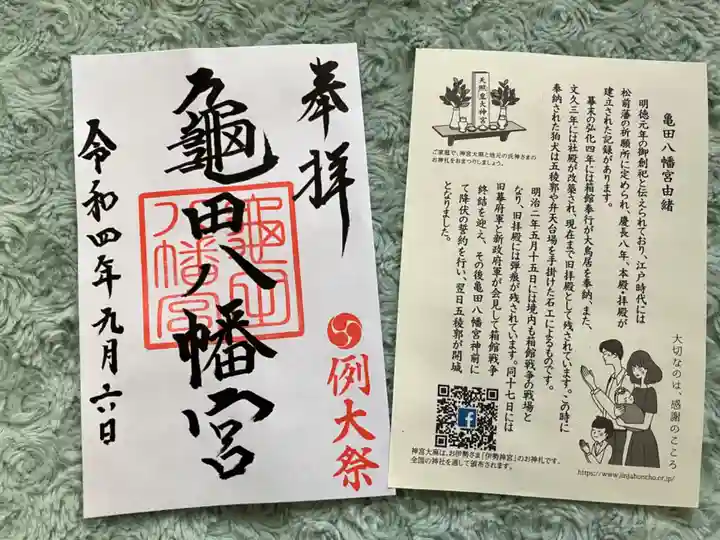 奉拝
亀田八幡宮
亀田
八幡宮
例大祭
令和四年九月六日
天照皇大神宮
ご家庭で、神宮大麻と地元の氏神さまの
お神札をおまつりしましょう。
亀田八幡宮由緒
明徳元年の御創祀と伝えられており、江戸時代には
松前藩の祈願所に定められ、慶長八年、本殿・拝殿が
建立された記録があります。
幕末の弘化四年には箱館奉行が大鳥居を奉納、また、
文久三年には社殿が改築され、現在まで旧拝殿として残されています。この時に
奉納された狛犬は五稜郭や弁天台場を手掛けた石工によるものです。
明治二年五月十五日には境内も箱館戦争の戦場と
なり、旧拝殿には弾痕が残されています。同十七日には
旧幕府軍と新政府軍が会見して箱館戦争
終結を迎え、その後亀田八幡宮神前に
て降伏の誓約を行い、翌日五稜郭が開城
となりました。
大切なのは、感謝のこころ
神宮大麻は、お伊勢さま「伊勢神宮」のお神札です。
全国の神社を通して頒布されます。
https://www.jinjahoncho.or.jp/